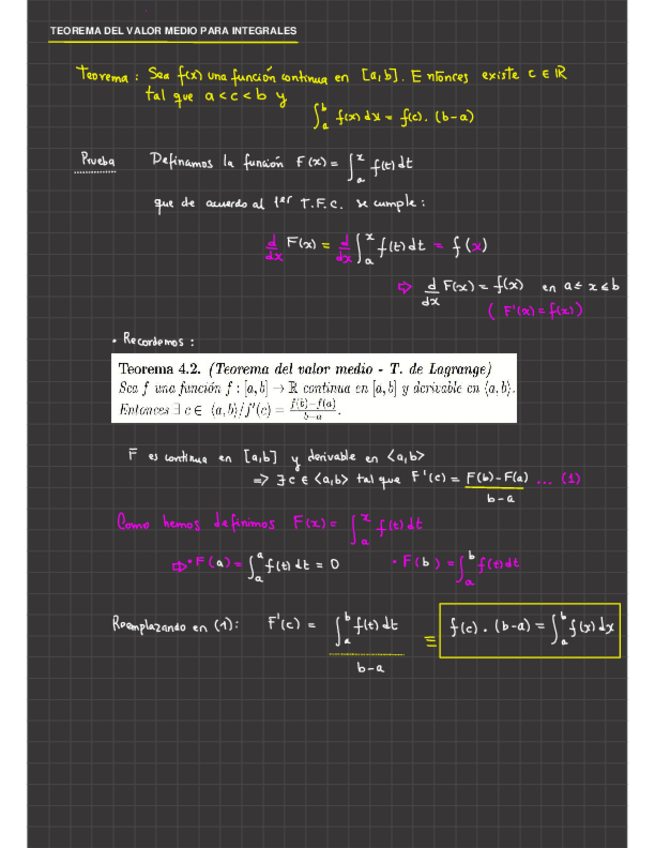 TEOREMA DEL VALOR MEDIO PARA INTEGRALES
Teorema : Sea f(x) una función continua en [a,b]. Entonces existe c ∈ ℝ
tal que a < c < b y
∫_a^b f(x) dx = f(c). (b-a)
Prueba Definamos la función F(x) = ∫_a^x f(t) dt
que de acuerdo al 1er T.F.C. se cumple :
d/dx F(x) = d/dx ∫_a^x f(t) dt = f(x)
⇨ d/dx F(x) = f(x) en a ≤ x ≤ b
( F'(x) = f(x) )
• Recordemos :
Teorema 4.2. (Teorema del valor medio - T. de Lagrange)
Sea f una función f : [a, b] → ℝ continua en [a, b] y derivable en ⟨a, b⟩.
Entonces ∃ c ∈ ⟨a, b⟩/f'(c) = (f(b)−f(a))/(b−a).
F es continua en [a,b] y derivable en <a,b>
=> ∃ c ∈ <a,b> tal que F'(c) = (F(b) - F(a))/(b-a) ... (1)
Como hemos definimos F(x) = ∫_a^x f(t) dt
⇨ • F(a) = ∫_a^a f(t) dt = 0 • F(b) = ∫_a^b f(t) dt
Reemplazando en (1): F'(c) = (∫_a^b f(t) dt)/(b-a) ≡ f(c) . (b-a) = ∫_a^b f(x) dx